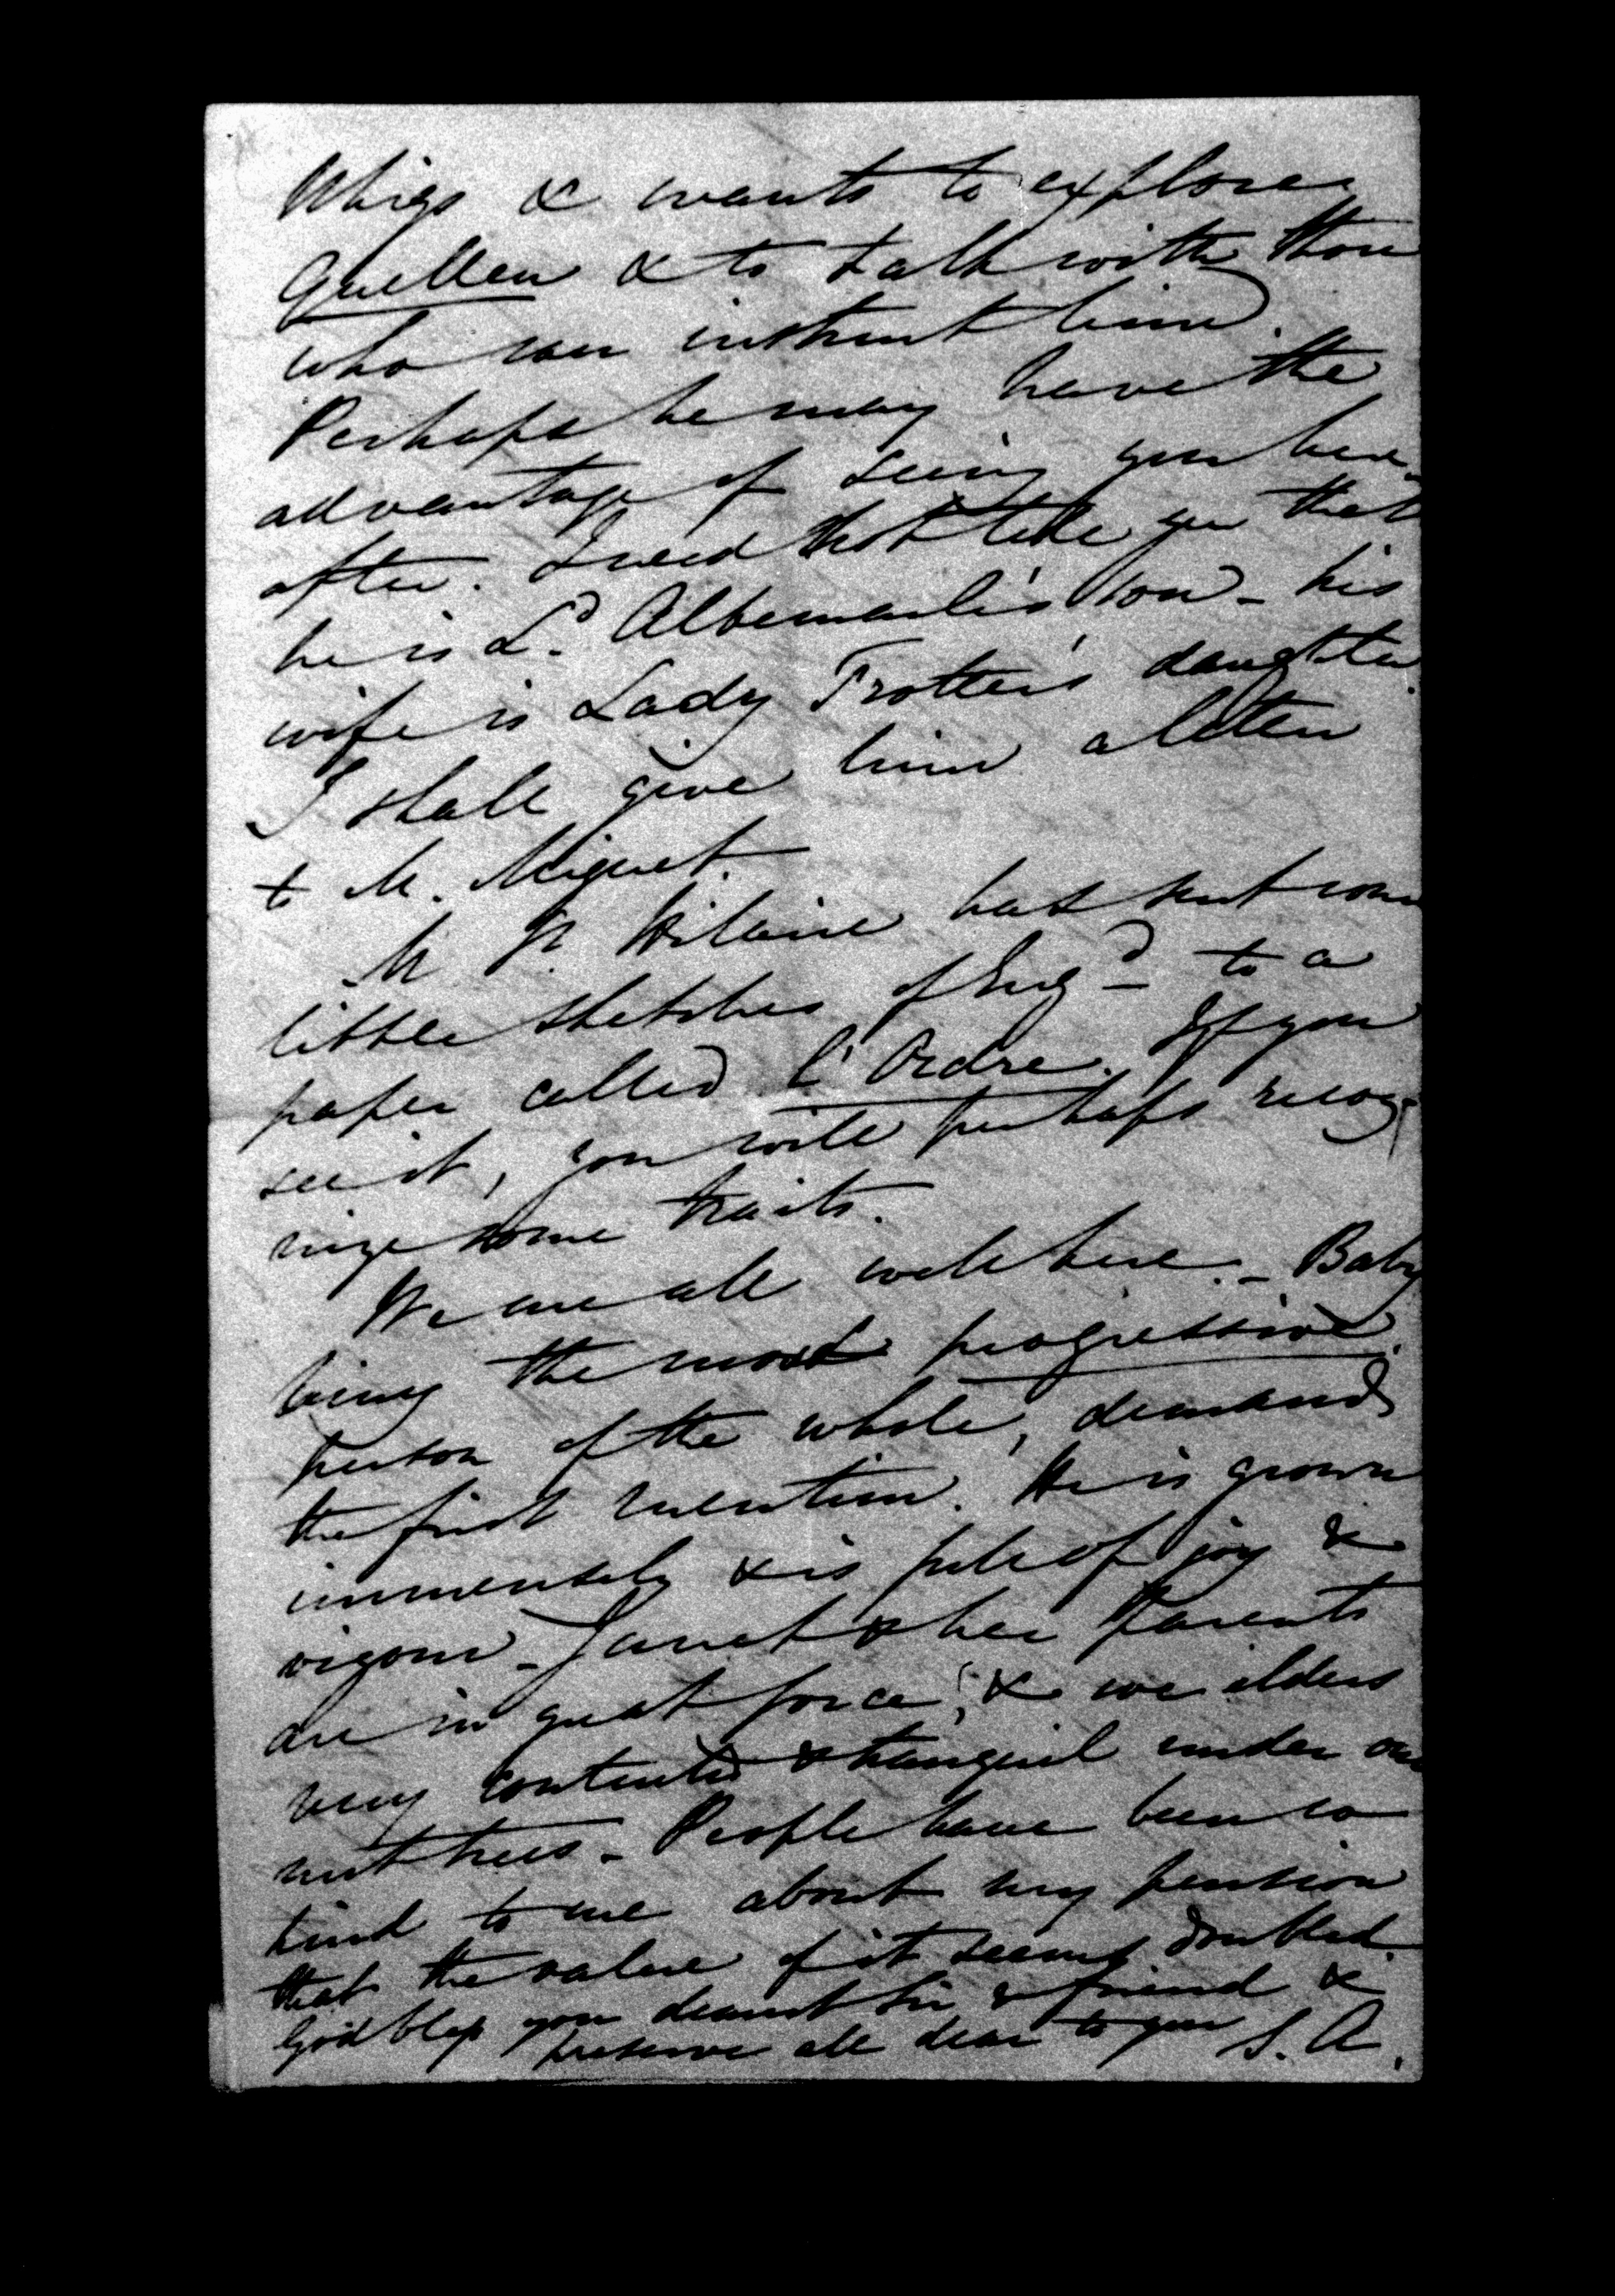 Whigs & wants to explore
Quellen & to talk with those
who can instruct him.
Perhaps he may have the
advantage of seeing you here-
after. I need not tell you that
he is Ld. Albemarle's son – his
wife is Lady Trotter's daughter.
I shall give him a letter
to M. Mignet.
M St Hilaire has sent some
little sketches of Engd – to a
paper called l'Ordre. If you
see it, you will perhaps recog-
nize some traits.
We are all well here. – Baby
being the most progressive
person of the whole, demands
the first mention. He is grown
immensely & is full of joy &
vigour – Janet & her Parents
are in great force; & we elders
very contented & tranquil under our
nut trees – People have been so
kind to me about my pension
that the value of it seems doubled.
God bless you dearest Sir & friend &
preserve all dear to you S. A.